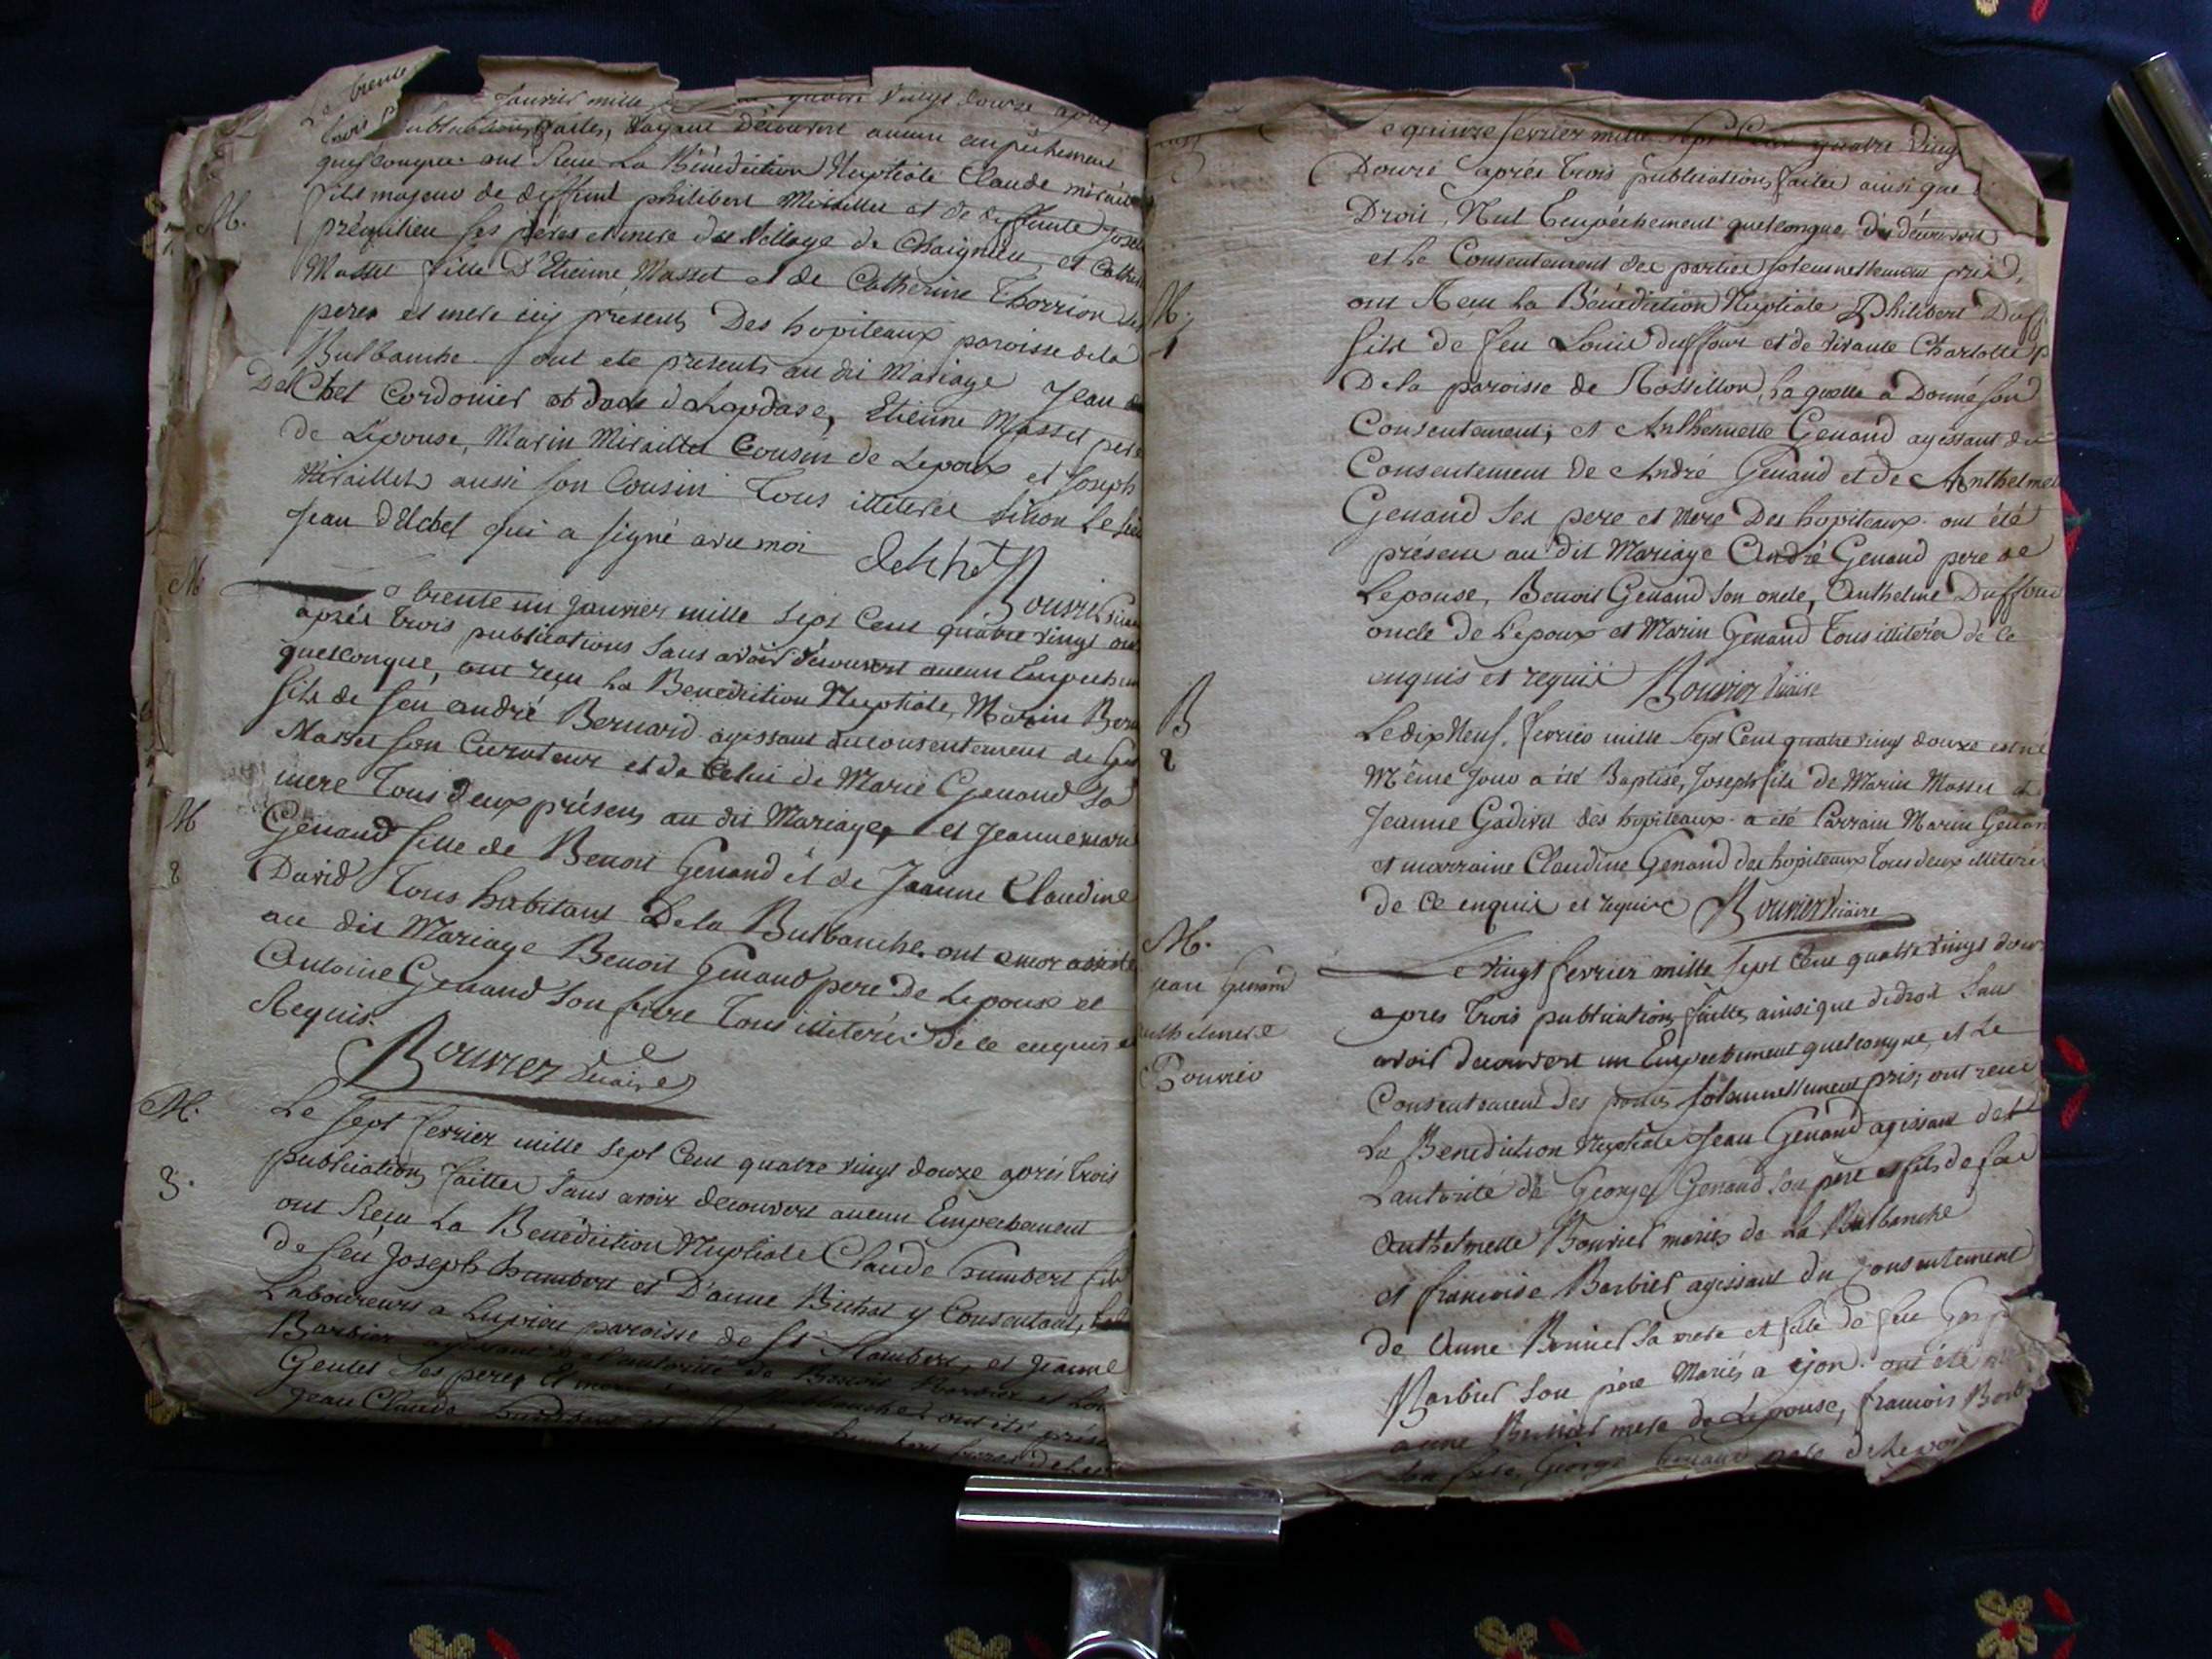 Le trente janvier mille quatre vingt douze après
trois publications faites, n'ayant découvert aucun empêchement
quelconque ont Reçu La Bénédiction Nuptiale Claude
M.
fils majeur de deffunt philibert Miraillet et de deffunte
ses pères et mere du Village de Chaignieu, et
Masset fille D'Etienne Masset et de Catherine Thorrion ses
peres et mere icy présents Des hopiteaux paroisse de la
Bulbanche. sont ete presents au dit Mariage Jean
Delchel Cordonier Etienne Masset pere
de Lépouse, Marin Miraillet Cousin de Lepoux et Joseph
Miraillet aussi son Cousin Tous illiteres sinon Le
Jean Delchel qui a signé avec moi
Bouvier
M
trente un janvier mille sept Cent quatre vingt
après trois publications sans avoir découvert aucun
quelconque, ont reçu la Benediction Nuptiale, Marin
fils de feu andré Bernard agissant du consentement de
Masset son Curateur et de Celui de Marie Genand sa
mere Tous deux présens au dit Mariage, et Jeanne marie
M
2
Genand fille de Benoit Genand et de Jeanne Claudine
David Tous habitans De la Bulbanche. ont encor assisté
au dit Mariage Benoit Genand pere De Lepouse et
Antoine Genand son frere Tous illiterés de ce enquis et
Requis.
Bouvier Vicaire
M.
Le sept fevrier mille sept Cent quatre vingt douze après trois
3.
publications faittes sans avoir decouvert aucun Empechement
ont Reçu La Benediction Nuptiale Claude humbert fils
de feu Joseph humbert et D'anne Bichat y Consentant,
Laboureurs a Luyrieu paroisse de St Rambert, et Jeanne
Barbier agissant de l'autorité de Benoit Barbier et
Gentet ses peres et mere ont été
Jean Claude
Le quinze fevrier mille sept Cent quatre vingt
Douze après trois publications faites ainsi que
Droit, Nul Empêchement quelconque découvert
et le Consentement des parties solemnellement pris,
M.
1
ont Reçu la Bénédiction Nuptiale Philibert
fils de feu Louis duffour et de vivante Charlotte
De la paroisse de Rossillon, la quelle a Donné son
Consentement; et Anthelmette Genand agissant du
Consentement de André Genand et de Anthelmette
Genand ses pere et mere Des hopiteaux. ont été
présens au dit Mariage André Genand pere de
Lepouse, Benoit Genand son oncle, Anthelme Duffour
oncle de l'epoux et Marin Genand Tous illiterés de ce
enquis et requis Bouvier Vicaire
B
2
Le dix Neuf fevrier mille sept Cent quatre vingt douze est né
Même jour a été Baptisé, Joseph fils de Marin Masset et
Jeanne Gadivet des hopiteaux. a été Parrain Marin Genand
et marraine Claudine Genand des hopiteaux Tous deux illiterés
de ce enquis et requis Bouvier Vicaire
M.
Jean Genand
anthelmette
Bouvier
Le vingt fevrier mille sept Cent quatre vingt douze
apres trois publications faittes ainsi que de droit sans
avoir decouvert un Empechement quelconque, et le
Consentement des parties solemnellement pris, ont reçu
La Benediction Nuptiale Jean Genand agissant de
Lautorité de George Genand son père et fils de feu
Anthelmette Bouvier mariés de la Bulbanche
et françoise Barbier agissant du Consentement
de Anne sa mere et fille de feu
Barbier son père Mariés a ont été
anne mere de Lepouse, françois
son frere, George Genand pere de